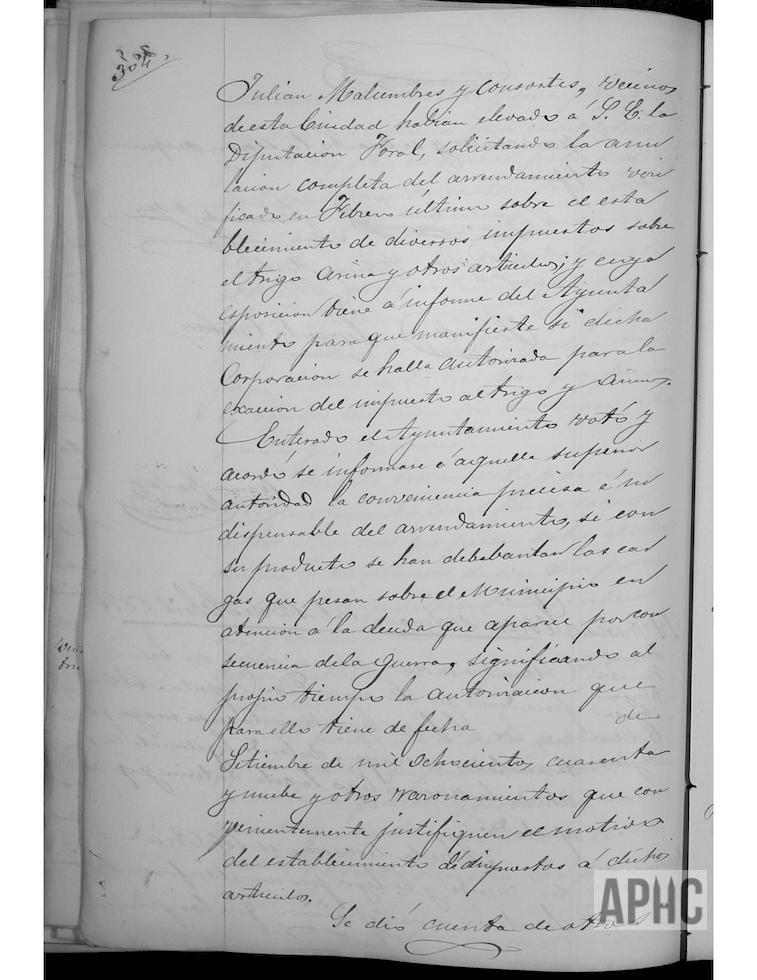 Julian Malumbres y consortes, vecinos
de esta Ciudad habian elevado á S. E. la
Diputacion Foral, solicitando la anu
lacion completa del arrendamiento veri
ficado en Febrero último sobre el esta
blecimiento de diversos impuestos sobre
el trigo arina y otros articulos; y cuya
esposicion viene á informe del Ayunta
miento para que manifieste si dicha
Corporacion se halla autorizada para la
exaccion del impuesto al trigo y
Enterado el Ayuntamiento votó y
acordó se informase á aquella superior
autoridad la conveniencia precisa é in
dispensable del arrendamiento, si con
su producto se han de lebantar las car
gas que pesan sobre el Municipio en
atencion á la deuda que aparece por con
secuencia de la Guerra, significando al
propio tiempo la autorizacion que
para ello tiene de fecha de
Setiembre de mil ochocientos cuarenta
y nuebe y otros razonamientos que con
vinientemente justifiquen el motivo
del establecimiento de impuestos á dichos
articulos.
Se dió cuenta de otro
APHC